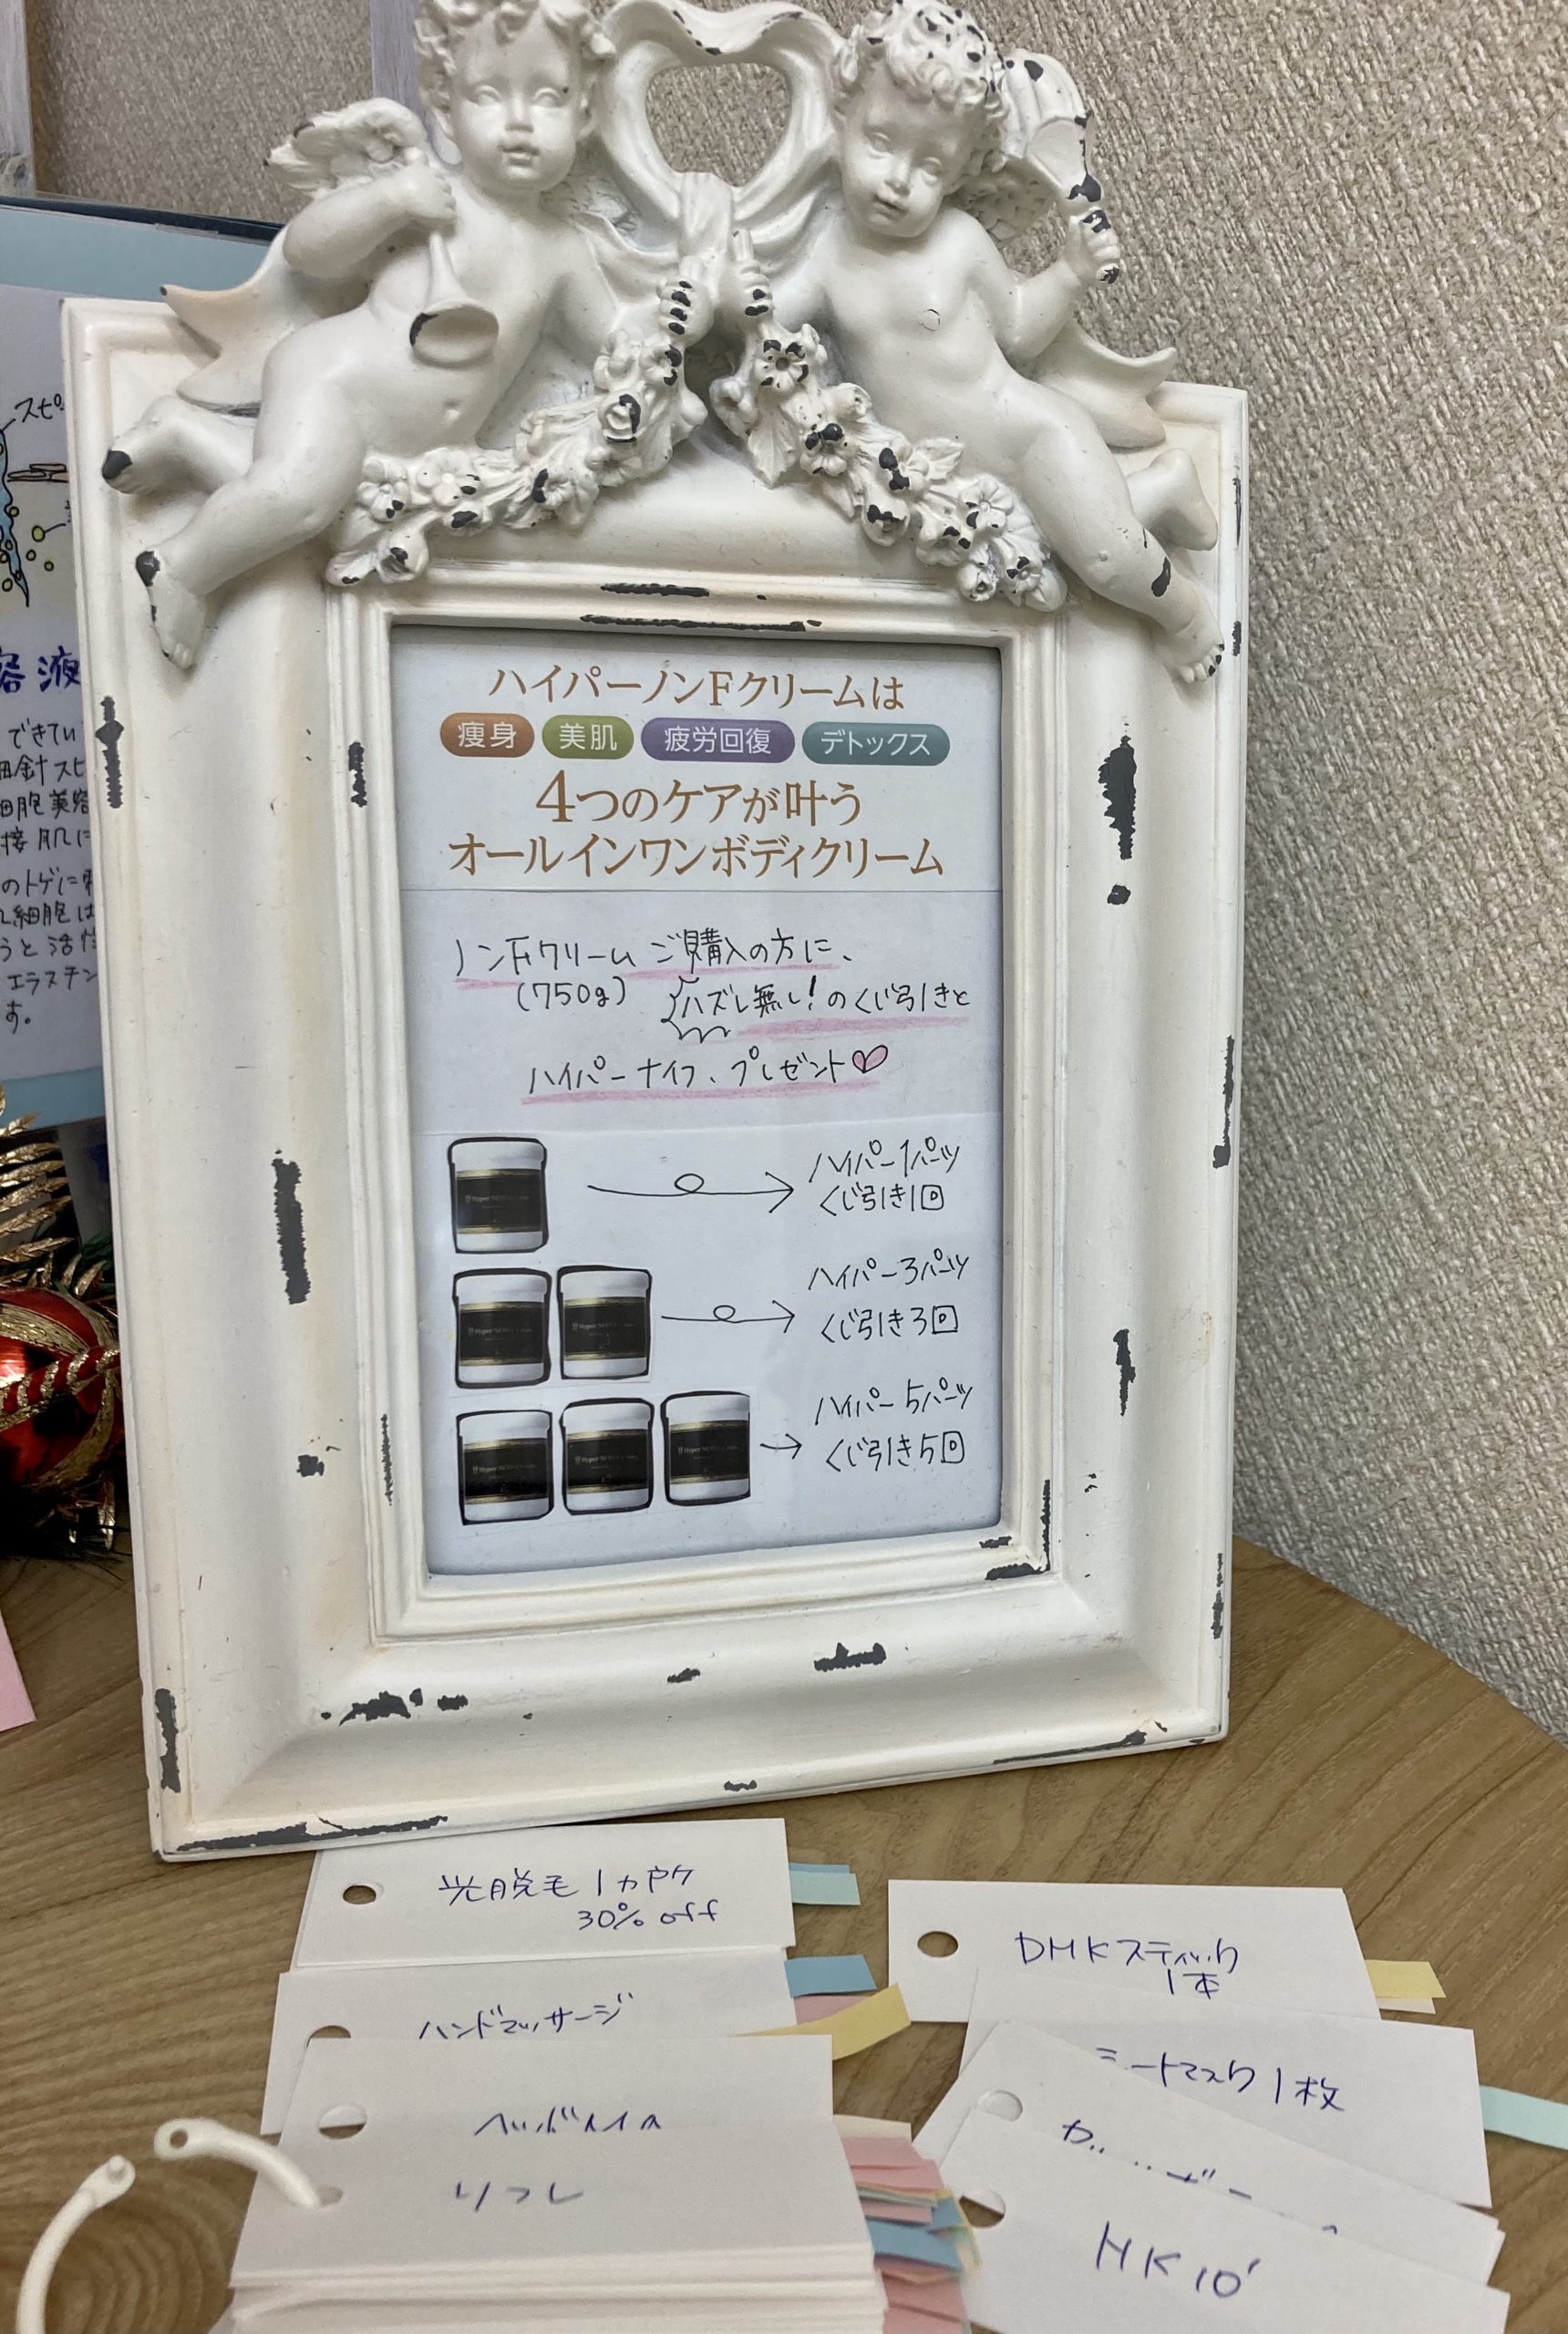 スピ
容液
できてい
細針スピ
細胞美容
接肌に
のトゲに
細胞は
うと活性
エラスチン
す。
ハイパーノンFクリームは
痩身 美肌 疲労回復 デトックス
4つのケアが叶う
オールインワンボディクリーム
ノンFクリーム ご購入の方に、
(750g) ハズレ無し!のくじ引きと
ハイパーナイフ、プレゼント♡
ハイパー1パーツ
くじ引き1回
ハイパー3パーツ
くじ引き3回
ハイパー5パーツ
くじ引き5回
光脱毛1カ所
30% off
ハンドマッサージ
ヘッドスパ
リフレ
DMKスティック
1本
シートマスク1枚
HK10'